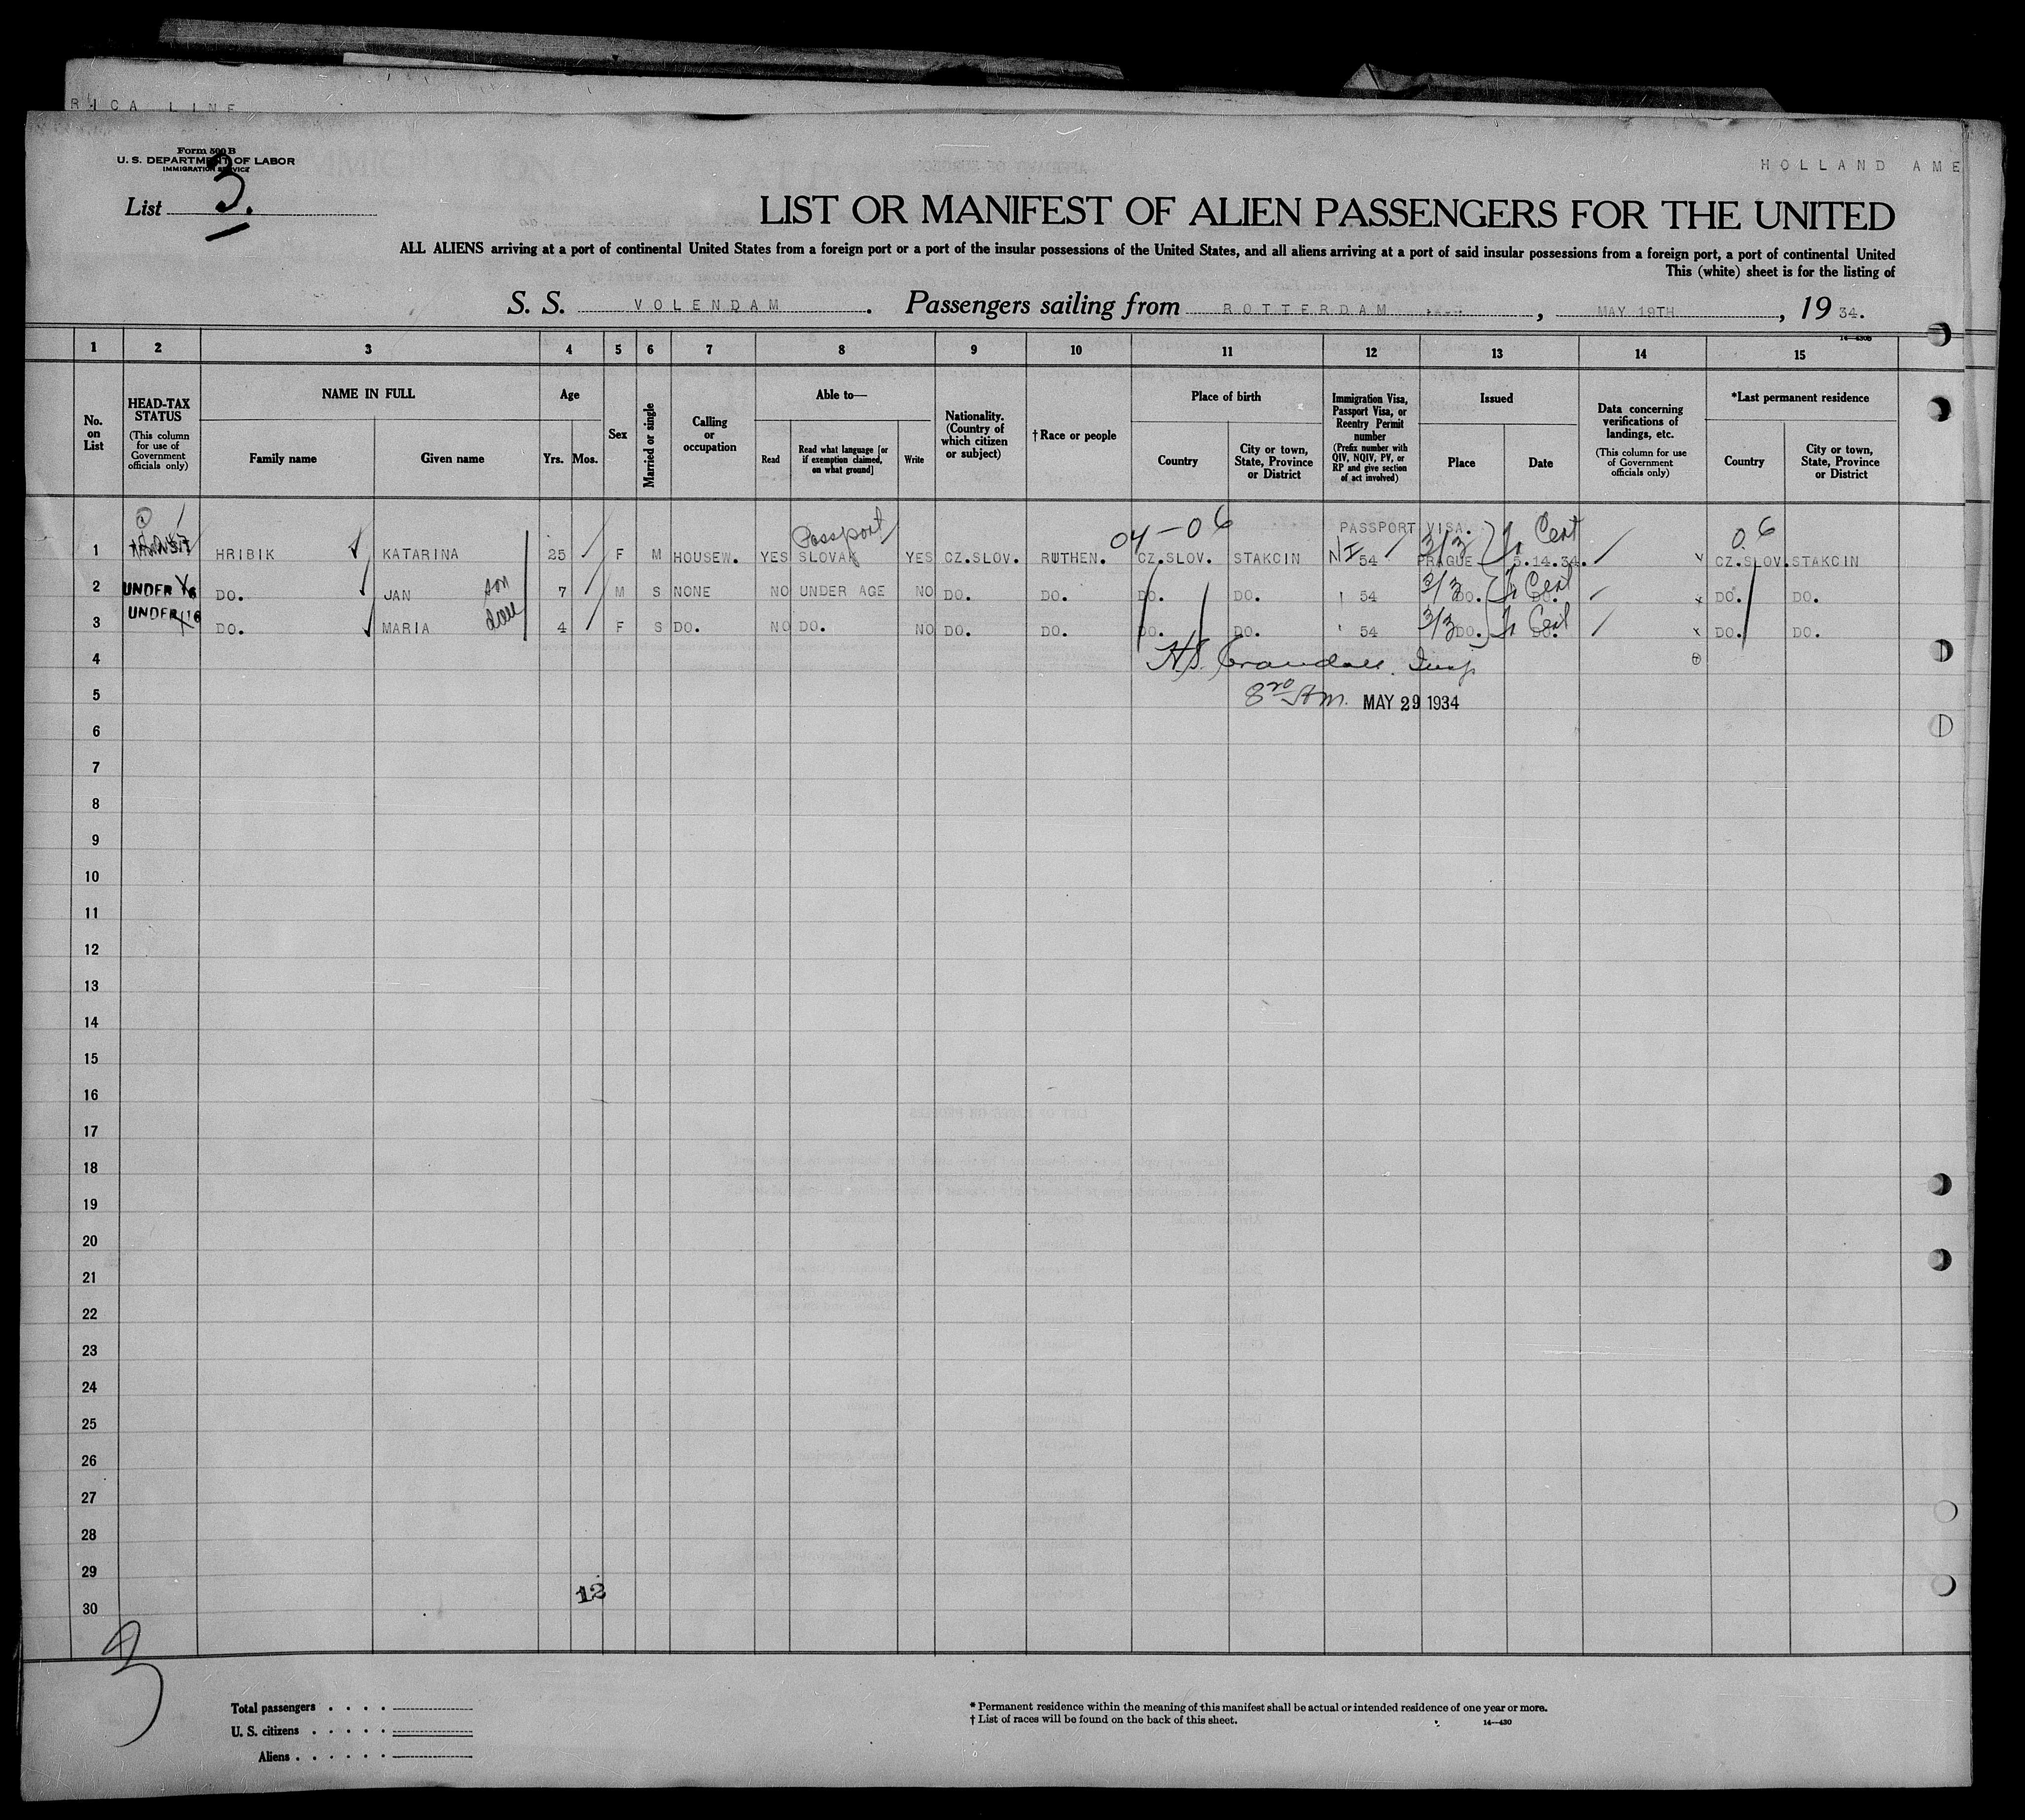 RICA LINE
Form 500 B
U. S. DEPARTMENT OF LABOR
IMMIGRATION SERVICE
HOLLAND AME
List 3.
LIST OR MANIFEST OF ALIEN PASSENGERS FOR THE UNITED
ALL ALIENS arriving at a port of continental United States from a foreign port or a port of the insular possessions of the United States, and all aliens arriving at a port of said insular possessions from a foreign port, a port of continental United
This (white) sheet is for the listing of
S. S. VOLENDAM. Passengers sailing from ROTTERDAM, MAY 19TH, 19 34.
1 2 3 4 5 6 7 8 9 10 11 12 13 14 15
No. on List
HEAD-TAX STATUS (This column for use of Government officials only)
NAME IN FULL
Family name
Given name
Age
Yrs. Mos.
Sex
Married or single
Calling or occupation
Able to—
Read
Read what language [or if exemption claimed, on what ground]
Write
Nationality. (Country of which citizen or subject)
†Race or people
Place of birth
Country
City or town, State, Province or District
Immigration Visa, Passport Visa, or Reentry Permit number (Prefix number with QIV, NQIV, PV, or RP and give section of act involved)
Issued
Place
Date
Data concerning verifications of landings, etc. (This column for use of Government officials only)
*Last permanent residence
Country
City or town, State, Province or District
Passport 04-06 PASSPORT VISA. 3/3 Cert 06
1 TRANSIT HRIBIK KATARINA 25 F M HOUSEW. YES SLOVAK YES CZ.SLOV. RUTHEN. CZ.SLOV. STAKCIN NI 54 PRAGUE 5.14.34. CZ.SLOV. STAKCIN
2 UNDER 16 DO. JAN son 7 M S NONE NO UNDER AGE NO DO. DO. DO. DO. 54 3/3 DO. Cert DO. DO. DO.
3 UNDER 16 DO. MARIA dau 4 F S DO. NO DO. NO DO. DO. DO. DO. 54 3/3 DO. Cert DO. DO. DO.
4 H.S. Crandall. Insp
5 8 AM. MAY 29 1934
6
7
8
9
10
11
12
13
14
15
16
17
18
19
20
21
22
23
24
25
26
27
28
29
12
30
3
Total passengers
U. S. citizens
Aliens
* Permanent residence within the meaning of this manifest shall be actual or intended residence of one year or more.
† List of races will be found on the back of this sheet.
14—430